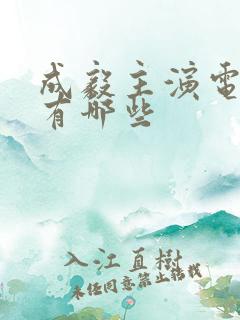 成毅主演电
有哪些
入江直樹
未经同意禁止转载